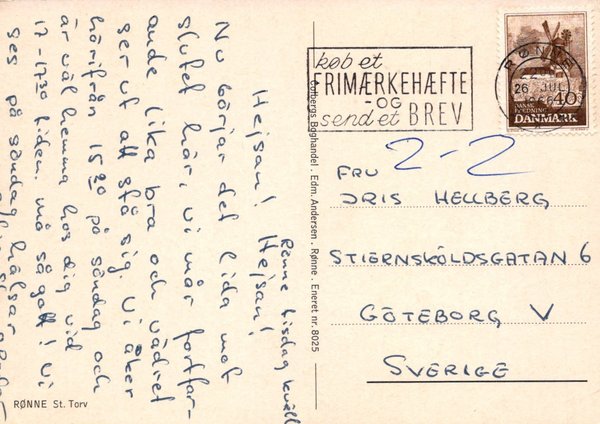 Rønne tisdag kväll
Hejsan! Hejsan!
Nu börjar det lida mot
slutet här, vi mår fortfar-
ande lika bra och vädret
ser ut att stå sig. Vi åker
härifrån 15 30 på söndag och
är väl hemma hos dig vid
17-17 30 tiden. må så gott! Vi
ses på söndag hälsar
RØNNE St. Torv
Colbergs Boghandel . Edm. Andersen . Rønne . Eneret nr. 8025
køb et
FRIMÆRKEHÆFTE
-OG
send et BREV
RØNNE
26 JUL
40
DANMARK
2-2
FRU
IRIS HELLBERG
STIERNSKÖLDSGATAN 6
GÖTEBORG V
SVERIGE